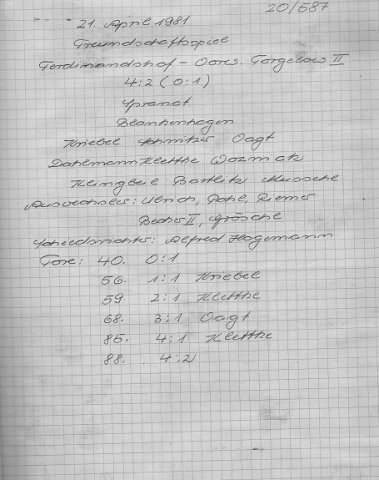 20/587
21. April 1981
Freundschaftsspiel
Ferdinandshof - Vorw. Torgelow II
4:2 (0:1)
Spranat
Blankenhagen
Kriebel Schmitz Vagt
Dahlmann Kletthe Wozniak
Klingbeil Bartlitz Mussehl
Auswechsler: Ulrich, Pohl, Riemer
Becker II, Gröschl
Schiedsrichter: Alfred Hagemann
Tore: 40. 0:1
56. 1:1 Kriebel
59 2:1 Kletthe
68. 3:1 Vagt
85. 4:1 Kletthe
88. 4:2